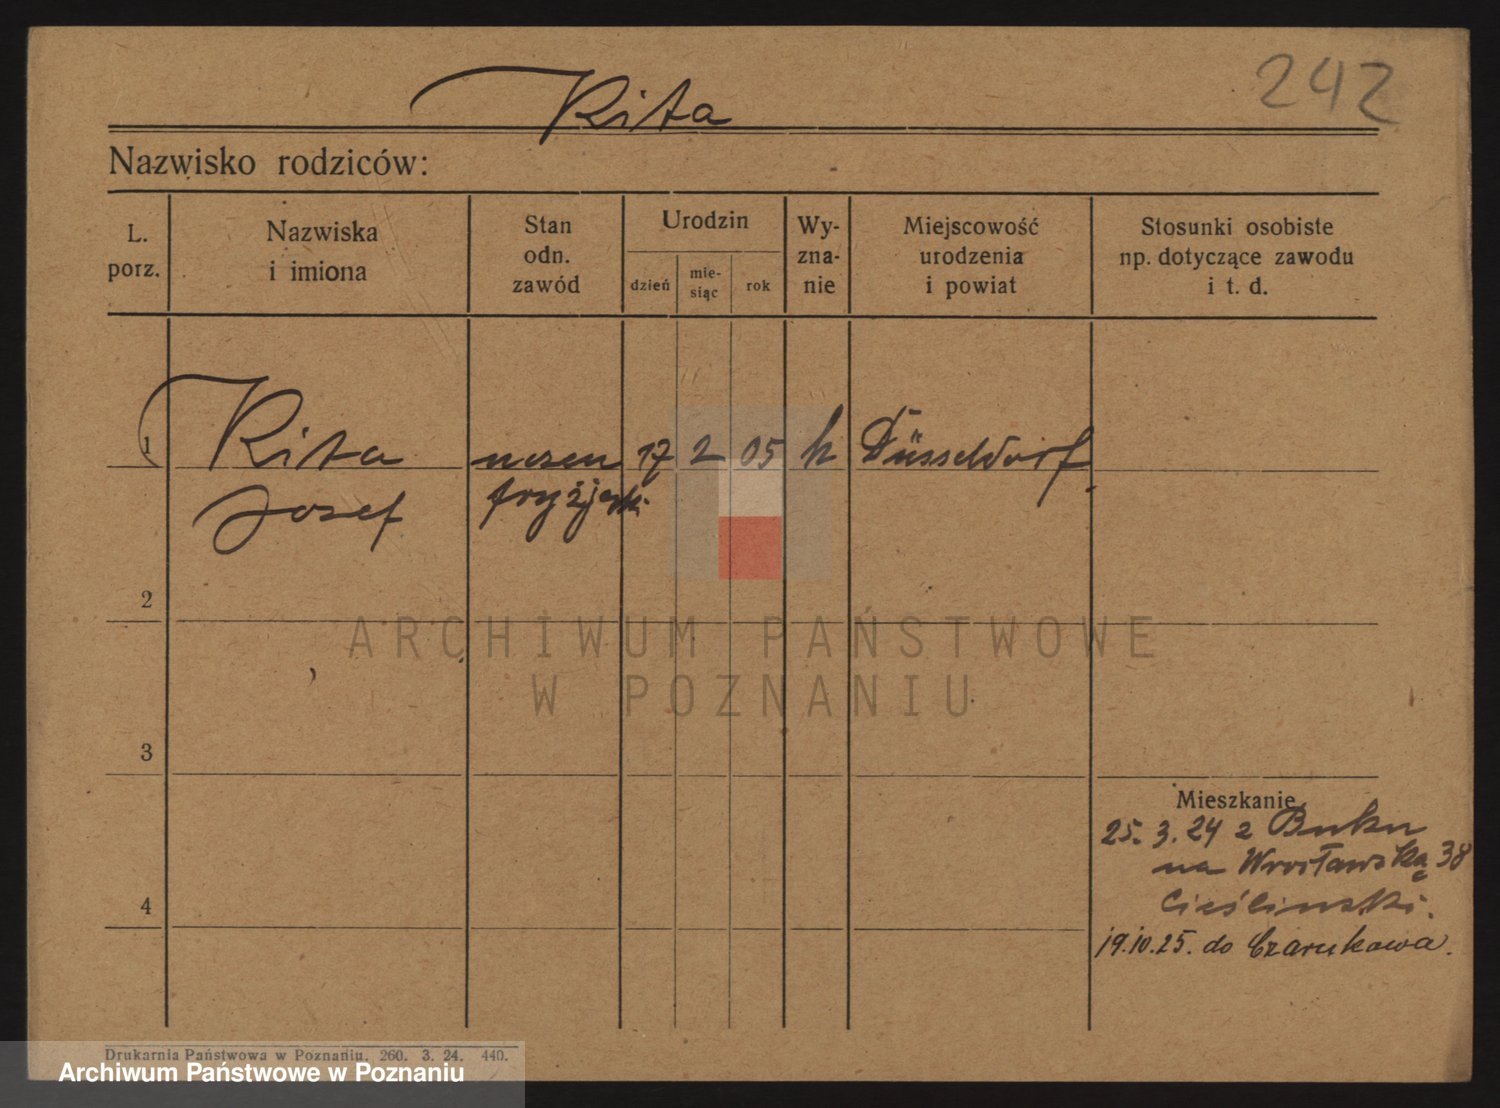 242
Rita
Nazwisko rodziców:
L. porz.
Nazwiska i imiona
Stan odn. zawód
Urodzin
dzień
mie- siąc
rok
Wy- zna- nie
Miejscowość urodzenia i powiat
Stosunki osobiste np. dotyczące zawodu i t. d.
1 Rita uczeń 17 2 05 k Düsseldorf
Josef fryzjerski
2
ARCHIWUM PAŃSTWOWE
W POZNANIU
3
Mieszkanie
25. 3. 24 z Buku
na Wrocławską 38
Cieślinski.
4
19.10.25. do Czarnkowa.
Drukarnia Państwowa w Poznaniu. 260. 3. 24. 440.
Archiwum Państwowe w Poznaniu